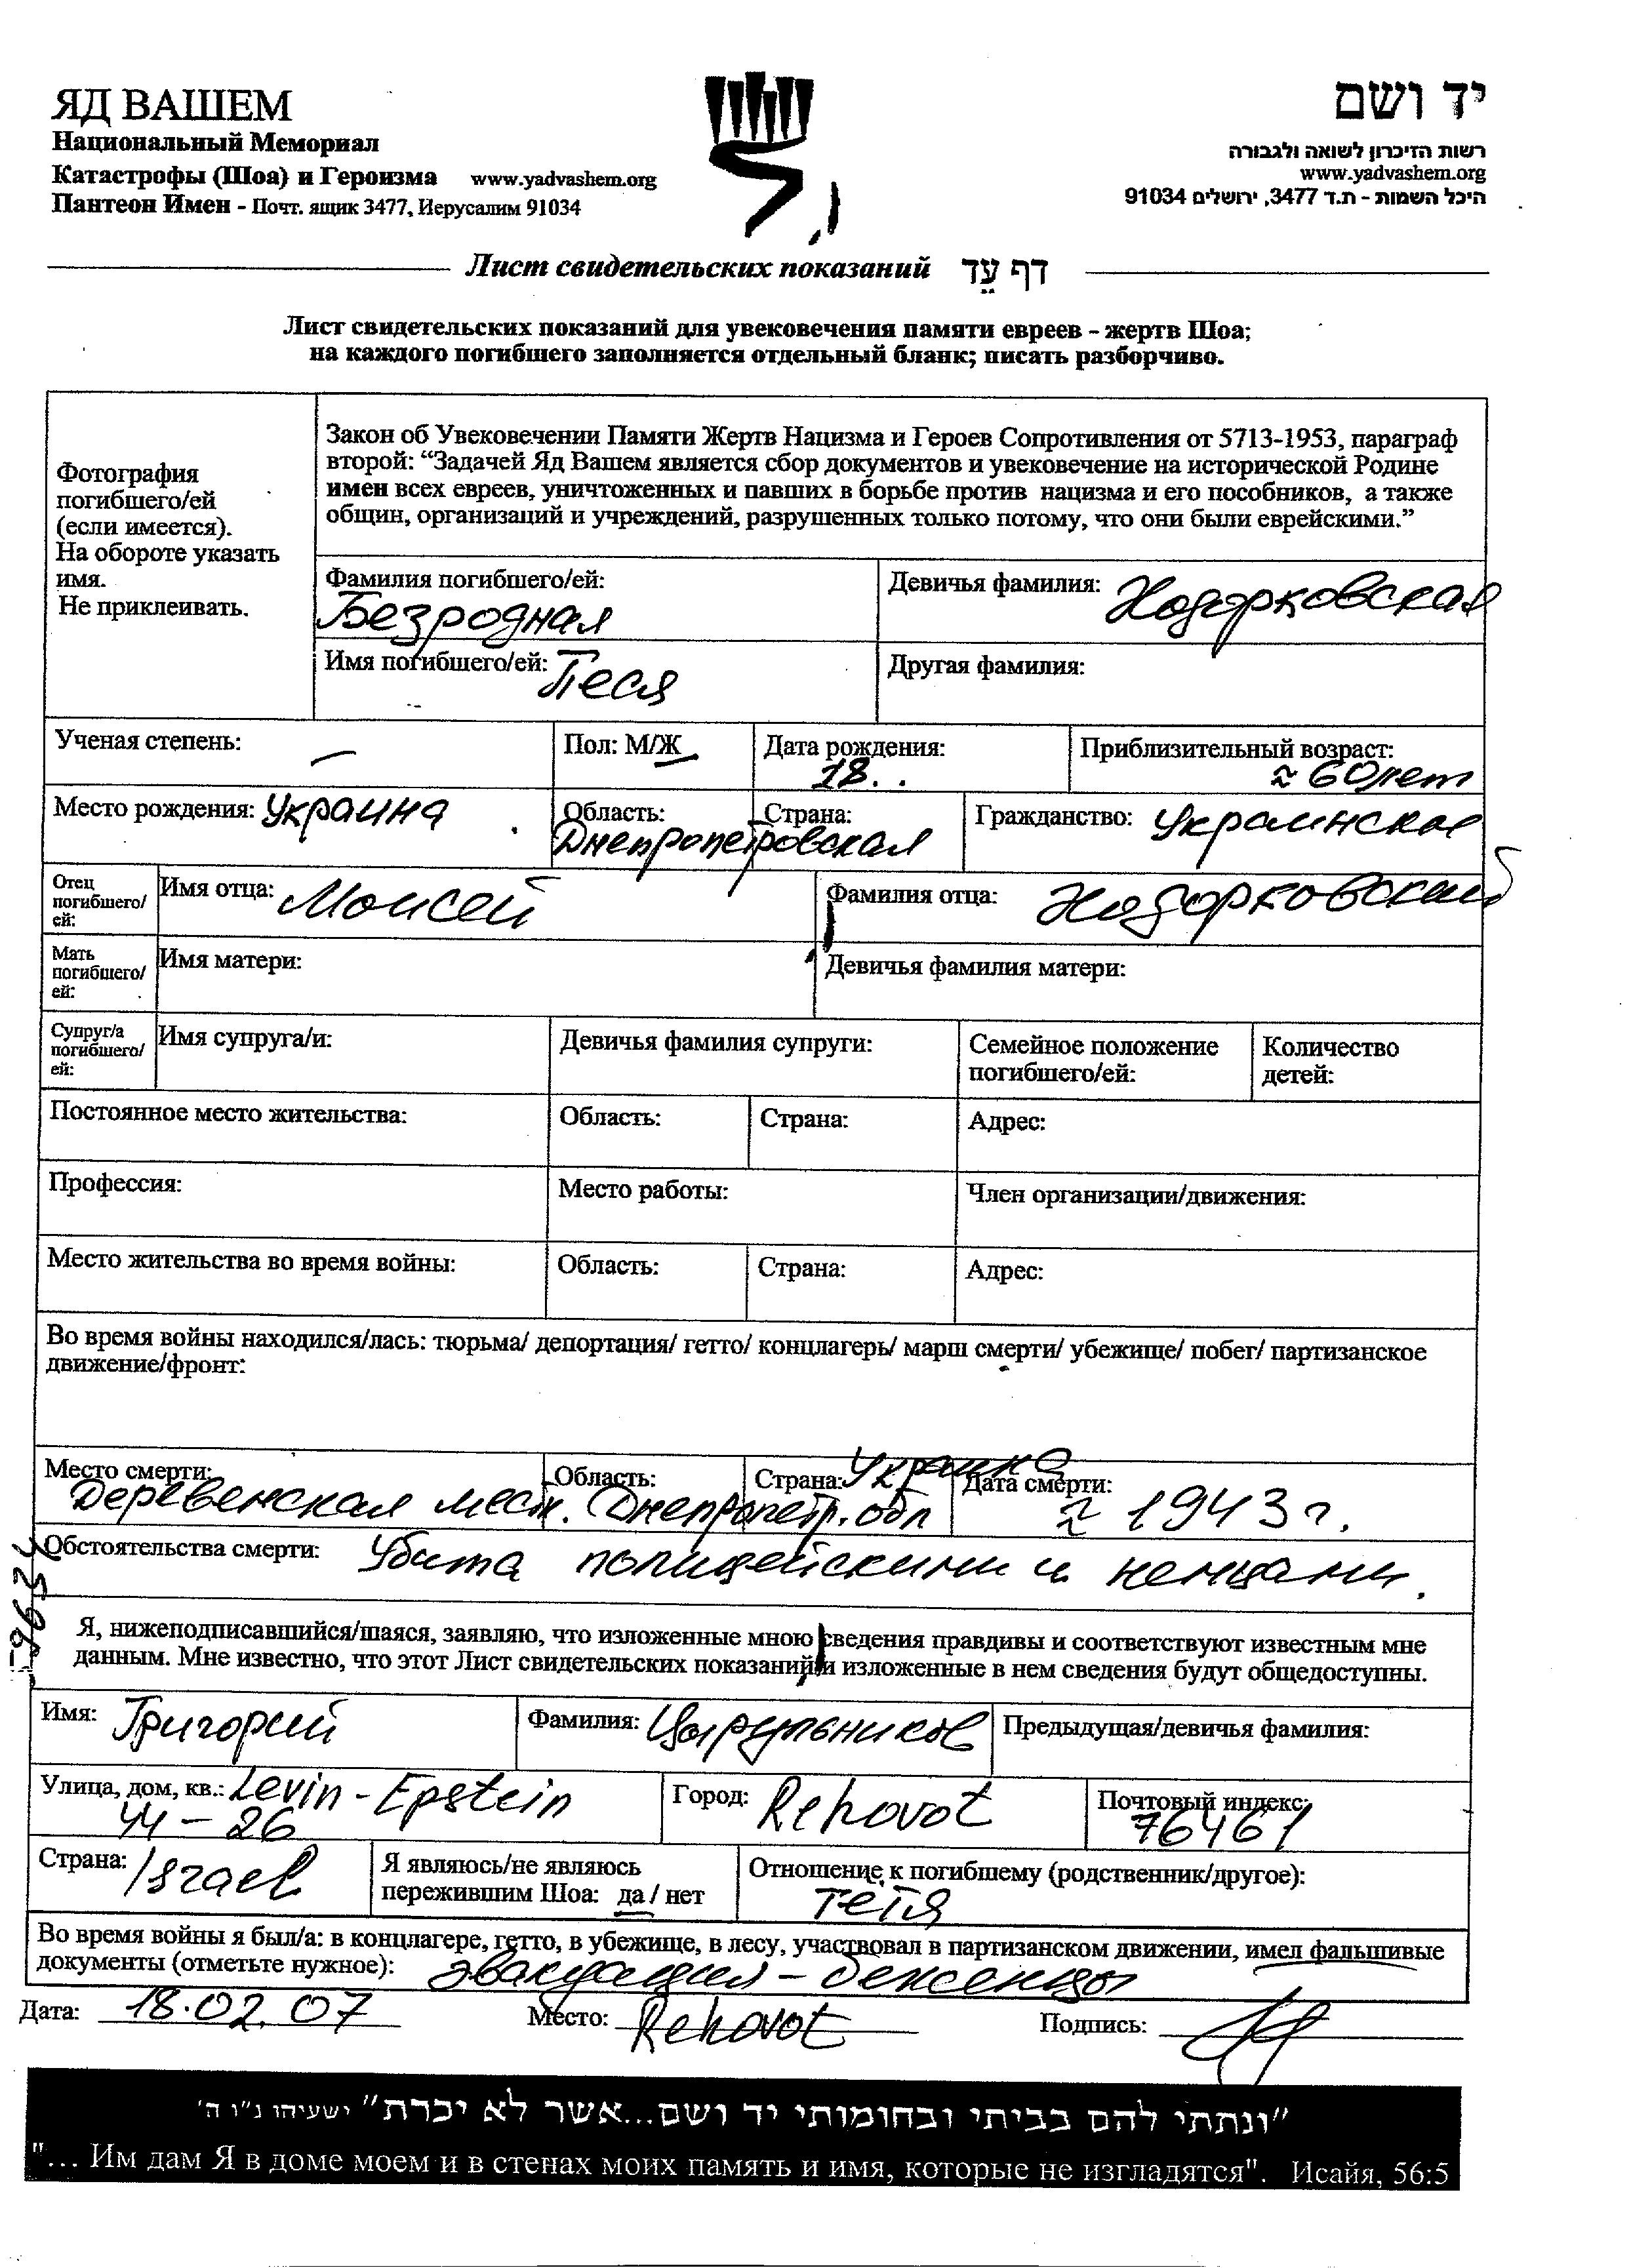 ЯД ВАШЕМ
Национальный Мемориал
Катастрофы (Шоа) и Героизма www.yadvashem.org
Пантеон Имен - Почт. ящик 3477, Иерусалим 91034
יד ושם
רשות הזיכרון לשואה ולגבורה
www.yadvashem.org
היכל השמות - ת.ד 3477, ירושלים 91034
Лист свидетельских показаний דף עֵד
Лист свидетельских показаний для увековечения памяти евреев - жертв Шоа;
на каждого погибшего заполняется отдельный бланк; писать разборчиво.
Фотография
погибшего/ей
(если имеется).
На обороте указать
имя.
Не приклеивать.
Закон об Увековечении Памяти Жертв Нацизма и Героев Сопротивления от 5713-1953, параграф
второй: “Задачей Яд Вашем является сбор документов и увековечение на исторической Родине
имен всех евреев, уничтоженных и павших в борьбе против нацизма и его пособников, а также
общин, организаций и учреждений, разрушенных только потому, что они были еврейскими.”
Фамилия погибшего/ей:
Безродная
Девичья фамилия: Ходорковская
Имя погибшего/ей: Песя
Другая фамилия:
Ученая степень: —
Пол: М/Ж
Дата рождения:
18. .
Приблизительный возраст:
≈ 60 лет
Место рождения: Украина
Область: Страна:
Днепропетровская
Гражданство: Украинское
Отец
погибшего/
ей:
Имя отца: Моисей
Фамилия отца: Ходорковский
Мать
погибшего/
ей:
Имя матери:
Девичья фамилия матери:
Супруг/а
погибшего/
ей:
Имя супруга/и:
Девичья фамилия супруги:
Семейное положение
погибшего/ей:
Количество
детей:
Постоянное место жительства:
Область:
Страна:
Адрес:
Профессия:
Место работы:
Член организации/движения:
Место жительства во время войны:
Область:
Страна:
Адрес:
Во время войны находился/лась: тюрьма/ депортация/ гетто/ концлагерь/ марш смерти/ убежище/ побег/ партизанское
движение/фронт:
Место смерти: Область: Страна: Украина Дата смерти:
Деревенская мест. Днепропетр. обл ≈ 1943 г.
Обстоятельства смерти: Убита полицейскими и немцами.
Я, нижеподписавшийся/шаяся, заявляю, что изложенные мною сведения правдивы и соответствуют известным мне
данным. Мне известно, что этот Лист свидетельских показаний и изложенные в нем сведения будут общедоступны.
Имя: Григорий
Фамилия: Цырульников
Предыдущая/девичья фамилия:
Улица, дом, кв.: Levin - Epstein
44 - 26
Город: Rehovot
Почтовый индекс:
76461
Страна: Israel
Я являюсь/не являюсь
пережившим Шоа: да / нет
Отношение к погибшему (родственник/другое):
тетя
Во время войны я был/а: в концлагере, гетто, в убежище, в лесу, участвовал в партизанском движении, имел фальшивые
документы (отметьте нужное): эвакуация - беженцы
Дата: 18.02.07 Место: Rehovot Подпись:
"ונתתי להם בביתי ובחומותי יד ושם...אשר לא יכרת" ישעיהו נ"ו ה'
"... Им дам Я в доме моем и в стенах моих память и имя, которые не изгладятся". Исайя, 56:5